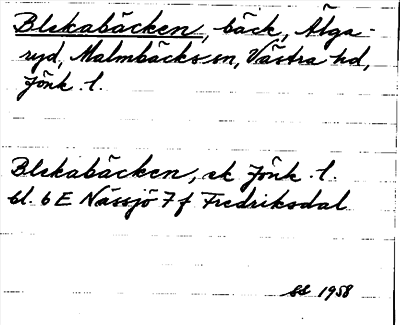 Blekabäcken, bäck, Älga-
ryd, Malmbäcks sn, Västra hd,
Jönk. l.
Blekabäcken, ek Jönk. l.
bl. 6 E Nässjö 7 f Fredriksdal
1958